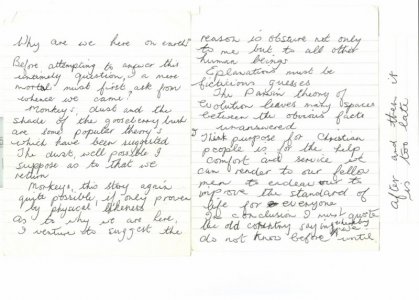 Why are we here on earth"
Before attempting to answer this
untimely question, a mere
mortal must first ask from
whence we came?
Monkeys, dust and the
shade of the gooseberry bush
are some popular theory's
which have been suggested
The dust, well possible I
suppose as to that we
return
Monkeys, this story again
quite possible, if only proven
by physical likeness
As to why we are here,
I venture to suggest the
reason is obscure not only
to me but to all other
human beings
Explanations must be
ficticious guesses
The Darwin theory of
Evolution leaves many spaces
between the obvious facts
unanswered
I Think purpose for Christian
people is for the help
comfort and service we
can render to our fellow
men to endeavour to
improve the standard of
life for everyone
In conclusion I must quote
the old country saying
do not know before until
after and then it
is too late